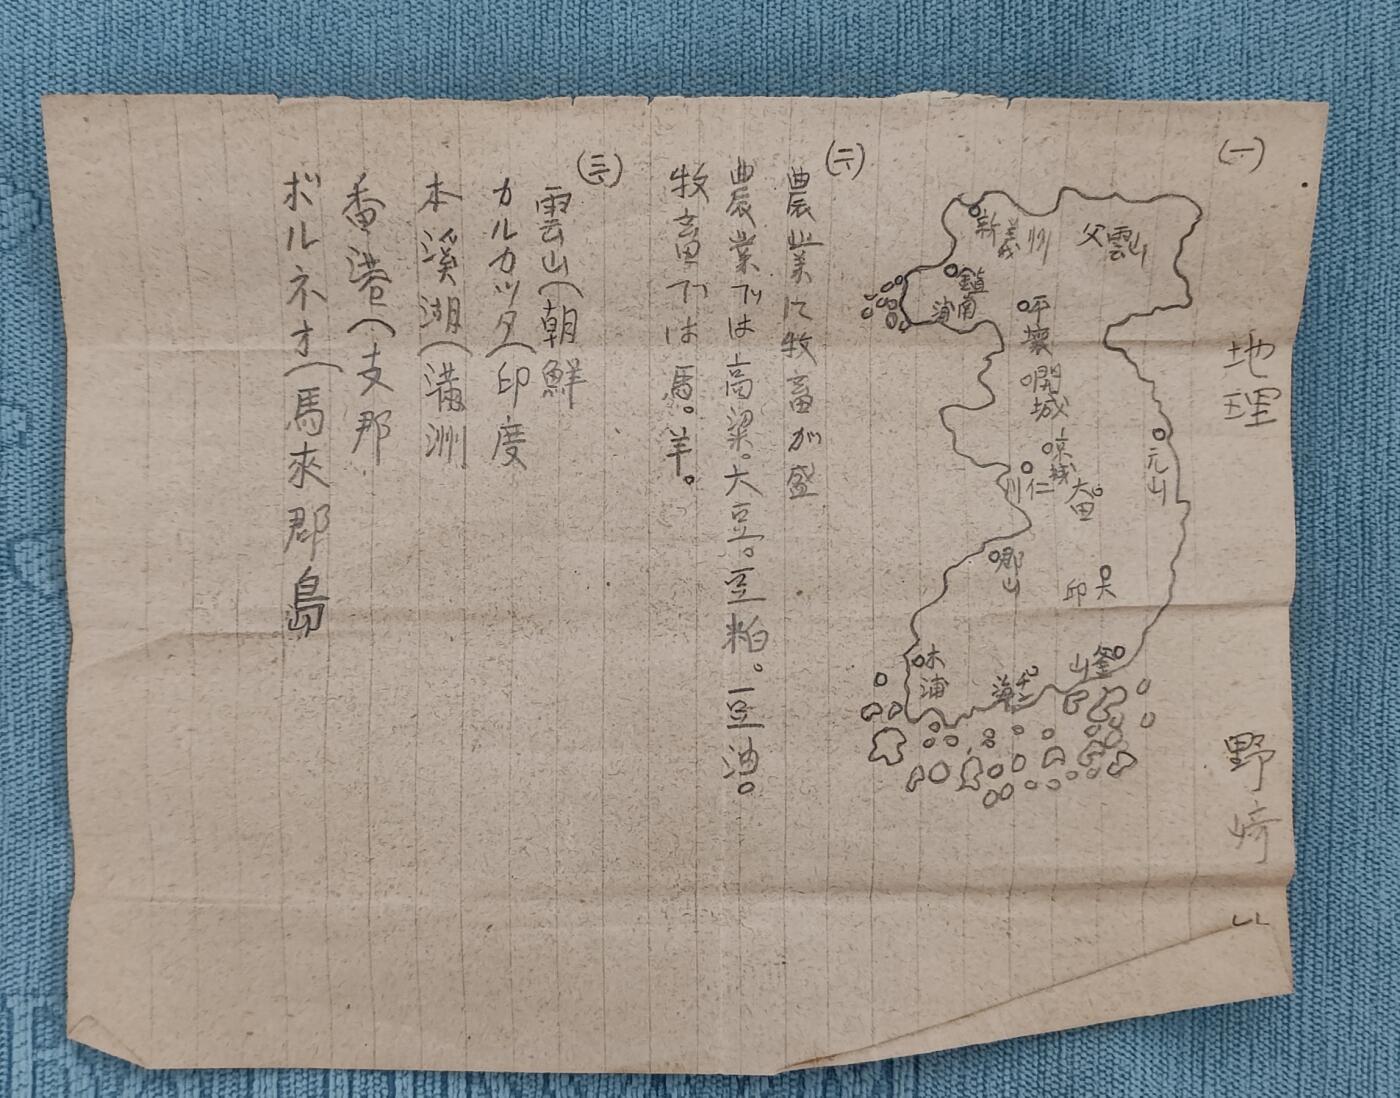 地理 野崎
(一)
新義州
雲山
鎮南浦
平壌
開城
京城
仁川
元山
大田
郡山
大邱
釜山
木浦
(二)
農業に牧畜が盛
農業では高粱。大豆。豆粕。豆油。
牧畜では馬。羊。
(三)
雲山(朝鮮
カルカッタ(印度
本溪湖(満洲
香港(支那
ボルネオ(馬來郡島